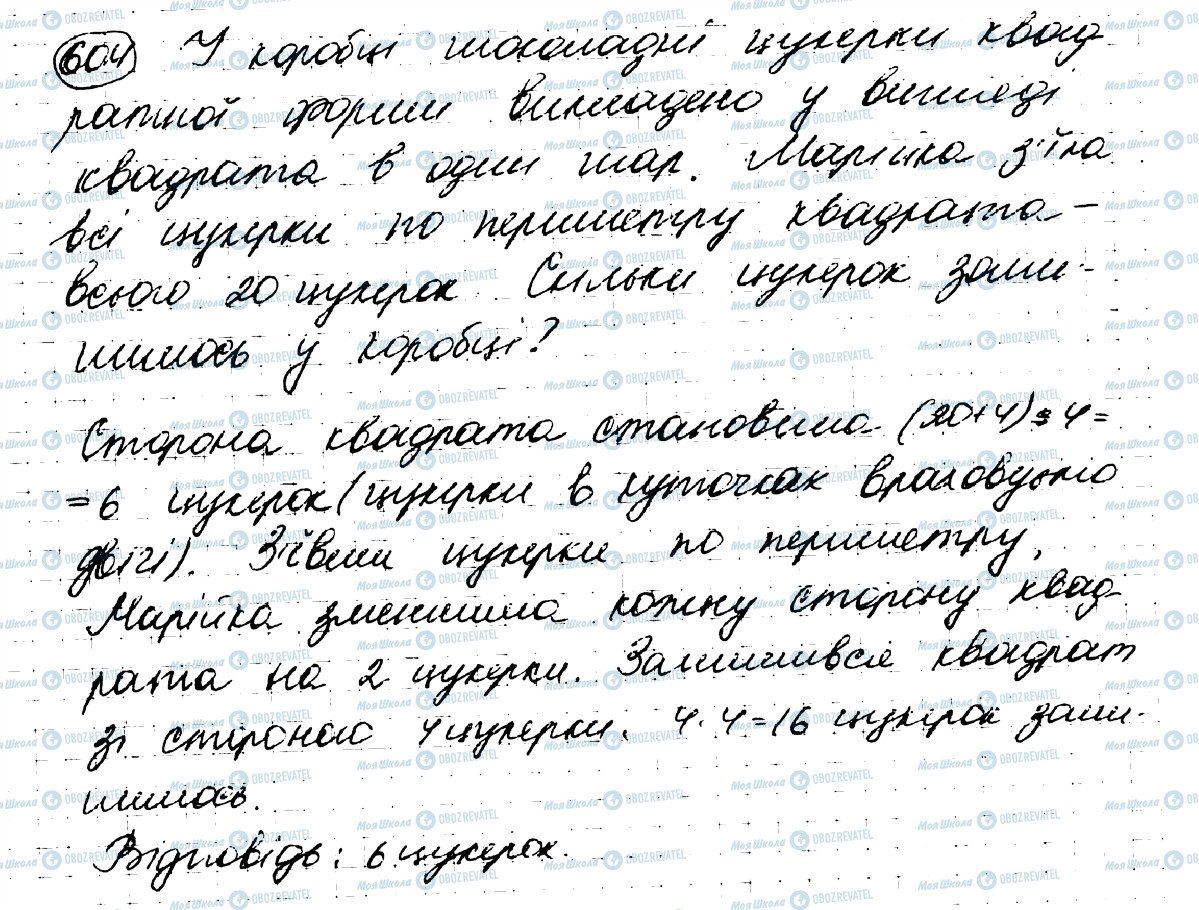 604 У коробці шоколадні цукерки квад-
ратної форми викладено у вигляді
квадрата в один шар. Марійка з'їла
всі цукерки по периметру квадрата –
всього 20 цукерок. Скільки цукерок зали-
шилось у коробці?
Сторона квадрата становила (20+4):4=
=6 цукерок (цукерки в куточках враховуємо
двічі). З'ївши цукерки по периметру,
Марійка зменшила кожну сторону квад-
рата на 2 цукерки. Залишився квадрат
зі стороною 4 цукерки. 4·4=16 цукерок зали-
шилось.
Відповідь: 6 цукерок.
МояШкола OBOZREVATEL